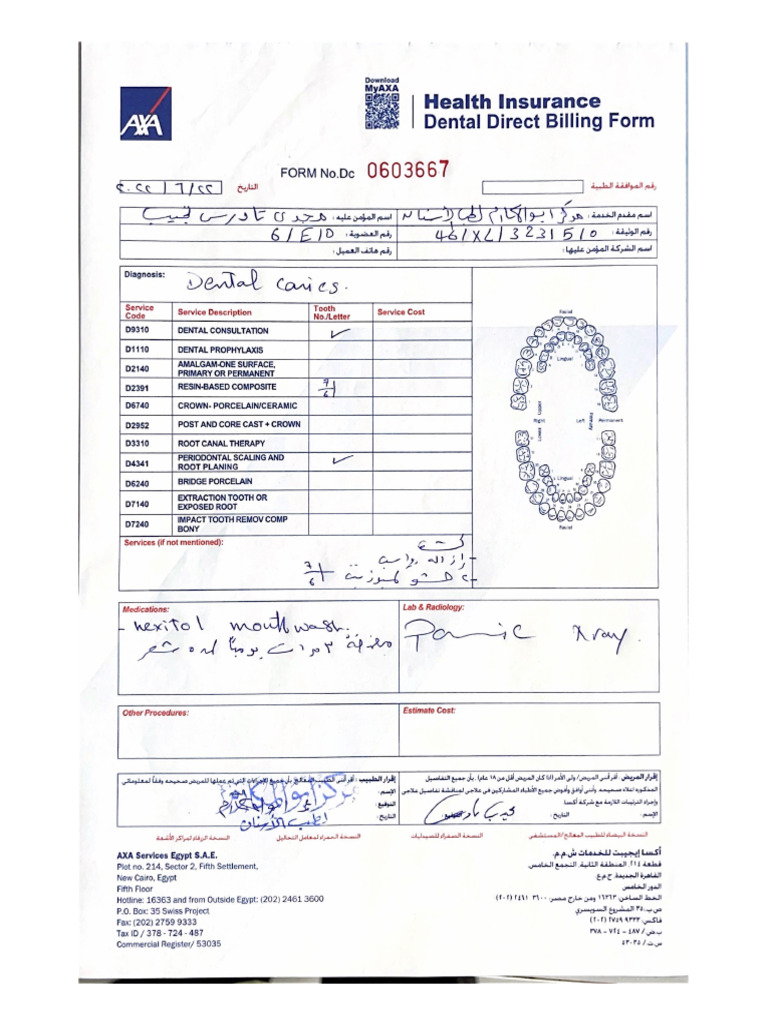 AXA
Download
MyAXA
Health Insurance
Dental Direct Billing Form
FORM No.Dc 0603667
رقم الموافقة الطبية
التاريخ ٢٠٢٢/٦/٢٢
اسم مقدم الخدمة: مركز ابو المكارم لطب الاسنان
اسم المؤمن عليه: مجدى تادرس نجيب
رقم الوثيقة: 46/XL/32315/0
رقم العضوية: 6/E/0
اسم الشركة المؤمن عليها:
رقم هاتف العميل:
Diagnosis: Dental caries.
Service Code Service Description Tooth No./Letter Service Cost
D9310 DENTAL CONSULTATION ✓
D1110 DENTAL PROPHYLAXIS
D2140 AMALGAM-ONE SURFACE, PRIMARY OR PERMANENT
D2391 RESIN-BASED COMPOSITE 7 6
D6740 CROWN- PORCELAIN/CERAMIC
D2952 POST AND CORE CAST + CROWN
D3310 ROOT CANAL THERAPY
D4341 PERIODONTAL SCALING AND ROOT PLANING ✓
D6240 BRIDGE PORCELAIN
D7140 EXTRACTION TOOTH OR EXPOSED ROOT
D7240 IMPACT TOOTH REMOV COMP BONY
Facial
Lingual
Upper
Right Left Permanent
Primary
Lower
Lingual
Facial
Services (if not mentioned):
كشف
- ازالة رواسب
- ٢ حشو كمبوزيت 7 6
Medications:
- hexitol mouth wash.
مضمضة ٣ مرات يومياً لمدة شهر
Lab & Radiology:
Panoramic Xray.
Other Procedures:
Estimate Cost:
إقرار المريض: أقر أنني المريض/ ولي الأمر (إذا كان المريض أقل من ١٨ عاما)، بأن جميع التفاصيل
المذكورة أعلاه صحيحة، وأنني أوافق وأفوض جميع الأطباء المشاركين في علاجي لمناقشة تفاصيل علاجي
وإجراء الترتيبات اللازمة مع شركة أكسا
الإسم:
التاريخ:
إقرار الطبيب: أقر أنني الطبيب المعالج بأن جميع الإجراءات التي تم عملها للمريض صحيحة وفقاً لمعلوماتي
الإسم:
التوقيع:
التاريخ:
مركز ابو المكارم
لطب الأسنان
النسخة البيضاء للطبيب المعالج/المستشفى
النسخة الصفراء للصيدليات
النسخة الحمراء لمعامل التحاليل
النسخة الزرقاء لمراكز الأشعة
AXA Services Egypt S.A.E.
Plot no. 214, Sector 2, Fifth Settlement,
New Cairo, Egypt
Fifth Floor
Hotline: 16363 and from Outside Egypt: (202) 2461 3600
P.O. Box: 35 Swiss Project
Fax: (202) 2759 9333
Tax ID / 378 - 724 - 487
Commercial Register/ 53035
أكسا إيجيبت للخدمات ش.م.م.
قطعة ٢١٤، المنطقة الثانية، التجمع الخامس،
القاهرة الجديدة، ج.م.ع.
الدور الخامس
الخط الساخن: ١٦٣٦٣ ومن خارج مصر: ٣٦٠٠ ٢٤٦١ (٢٠٢)
ص.ب. ٣٥ المشروع السويسري
فاكس: ٩٣٣٣ ٢٧٥٩ (٢٠٢)
ب.ض/ ٤٨٧ - ٧٢٤ - ٣٧٨
س.ت/ ٥٣٠٣٥